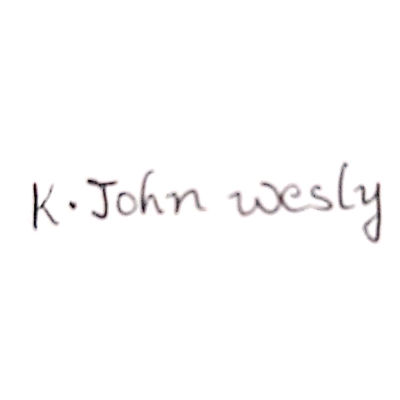 K. John wesly